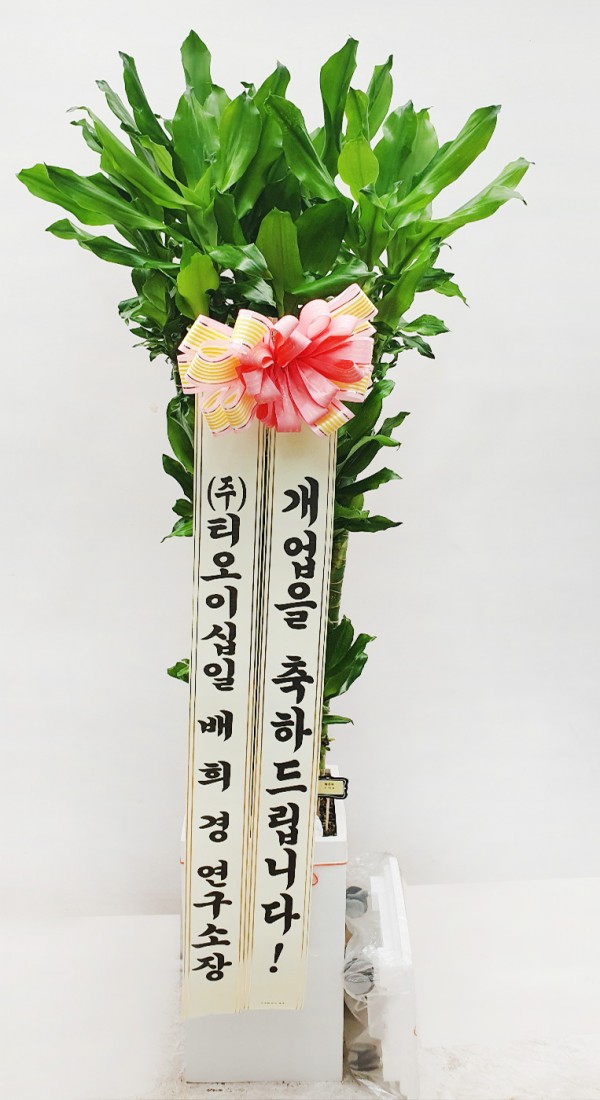 개업을 축하드립니다!
(주)티오이십일 배희경 연구소장